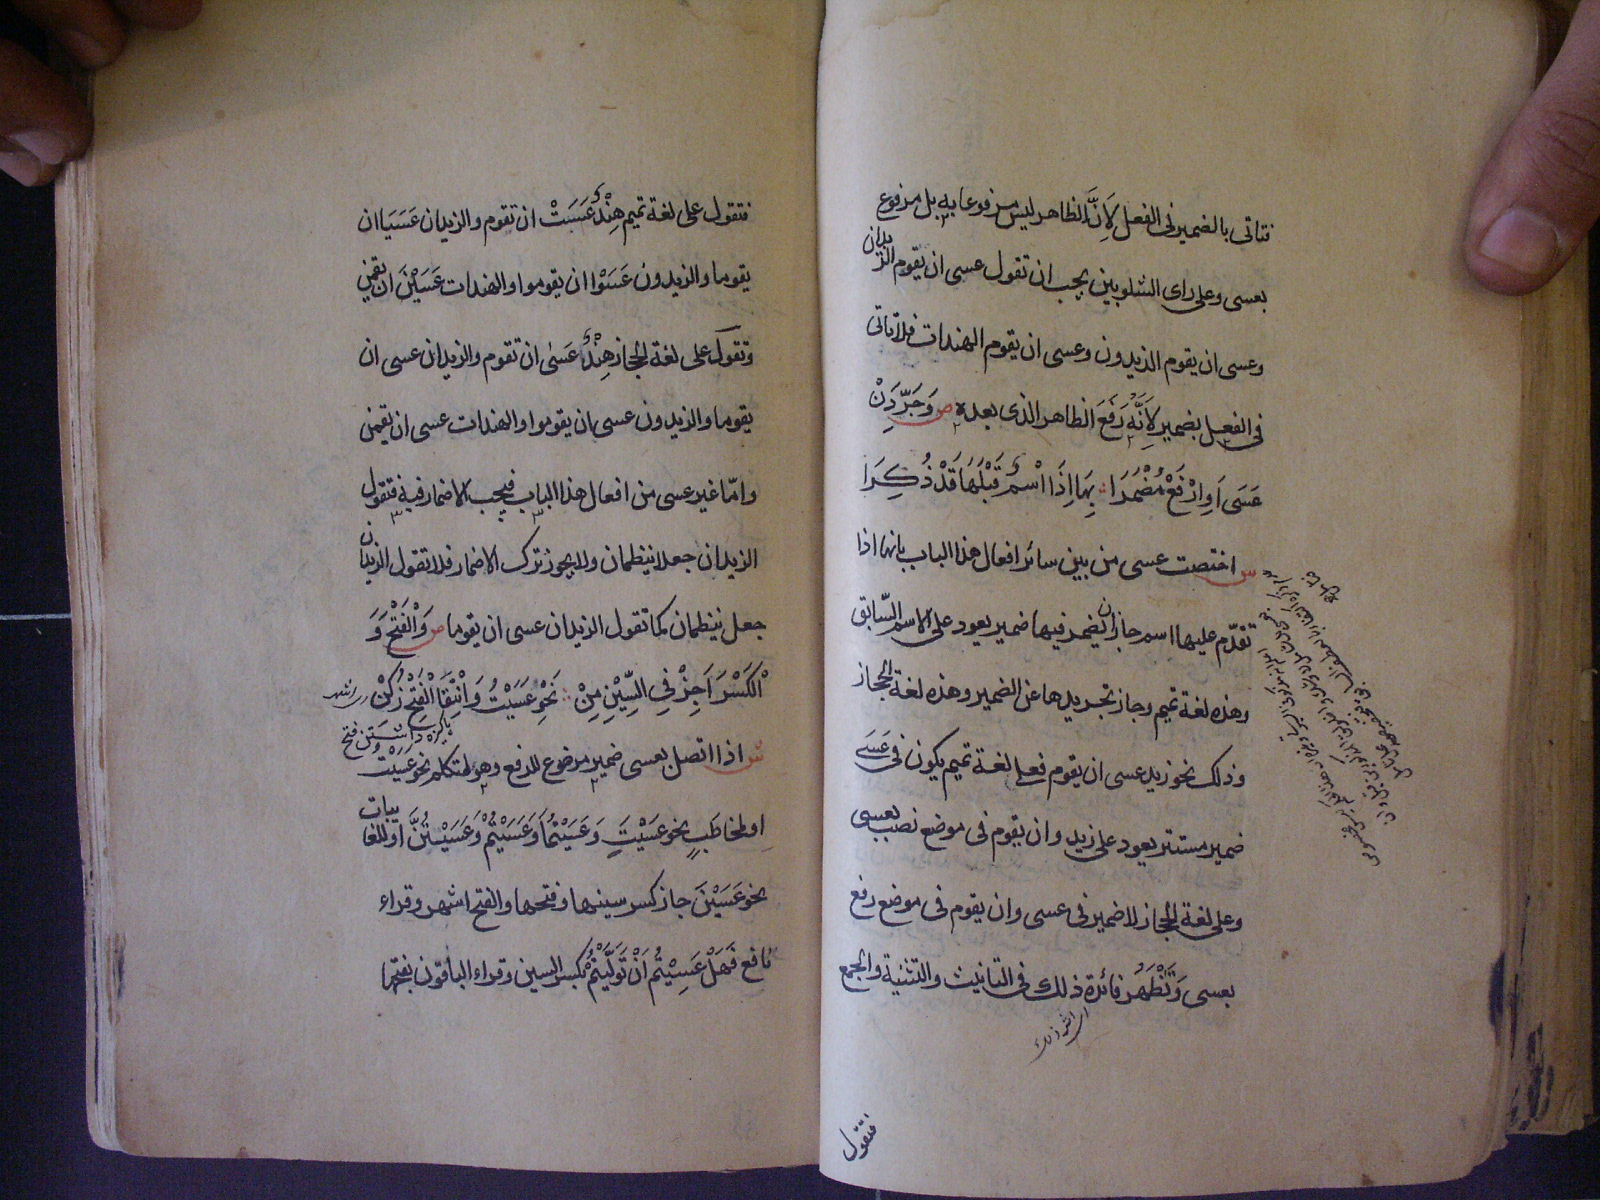 فتاتى بالضمير فى الفعل لِاَنَّ الظاهر ليس مرفوعا به بل مرفوع
بعسى وعلى راى الشلوبين يجب ان تقول عسى ان يقوم الزيدان
وعسى ان يقوم الزيدون وعسى ان يقوم الهندات فلا تاتى
فى الفعل بضمير لِاَنَّهُ رَفَعَ الظاهر الذى بعده ص وَجَرِّدَنْ
عَسَى اَوِ ارْفَعْ مُضْمَرَا بِهَا اِذَا اسْمٌ قَبْلَهَا قَدْ ذُكِرَا
ش اختصت عسى من بين سائر افعال هذا الباب بانها اذا
تقدّم عليها اسم جاز ان يضمر فيها ضمير يعود على الاسم السّابق
وهذه لغة تميم وجاز تجريدها عن الضمير وهذه لغة الحجاز
وذلك نحو زيد عسى ان يقوم فعلى لغة تميم يكون فى عَسَى
ضمير مستتر يعود على زيد وان يقوم فى موضع نصب بعسى
وعلى لغة الحجاز لا ضمير فى عسى وان يقوم فى موضع رفع
بعسى وَتَظْهَرُ فائدة ذلك فى التانيث والتثنية والجمع
فتقول
فتقول على لغة تميم هِنْدٌ عَسَتْ ان تقوم والزيدان عَسَيَا ان
يقوما والزيدون عَسَوْا ان يقوموا والهندات عَسَيْنَ ان يقمن
وتقول على لغة الحجاز هِنْدٌ عَسٰى ان تقوم والزيدان عسى ان
يقوما والزيدون عسى ان يقوموا والهندات عسى ان يقمن
وامّا غير عسى من افعال هذا الباب فيجب الاضمار فيه فتقول
الزيدان جعلا ينظمان ولا يجوز ترك الاضمار فلا تقول الزيدان
جعل ينظمان كما تقول الزيدان عسى ان يقوما ص وَالْفَتْحَ وَ
الْكَسْرَ اَجِزْ فِى السِّيْنِ مِنْ نَحْوِ عَسَيْتُ وَانْتِقَا الْفَتْحِ زُكِنْ
ش اذا اتصل بعسى ضمير موضوع للرفع وهو لمتكلم نحو عَسَيْتُ
اولمخاطَبٍ نحو عَسَيْتَ وَعَسَيْتُمَا وَعَسَيْتُمْ وَعَسَيْتُنَّ اولغائبات
نحو عَسَيْنَ جاز كسر سينها وفتحها والفتح اشهر وقراء
نافع فَهَلْ عَسِيْتُمْ اَنْ تَوَلَّيْتُمْ بكسر السين وقراء الباقون بفتحها